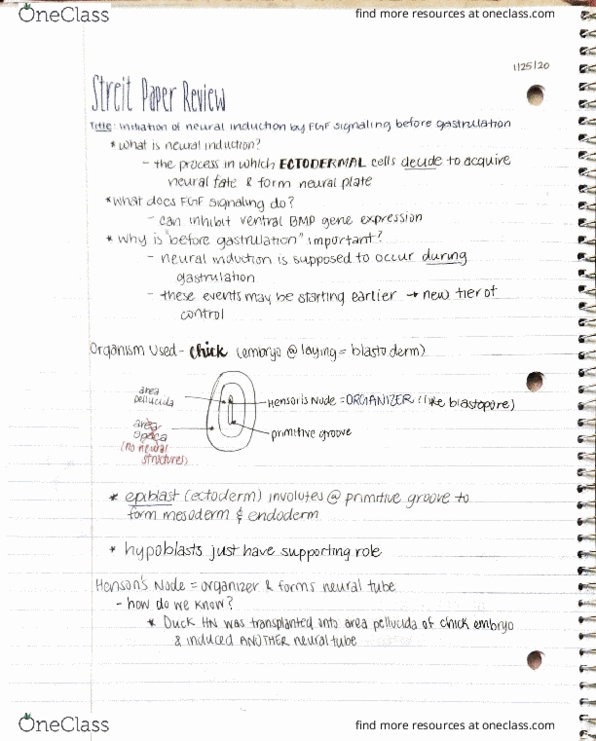 OneClass
find more resources at oneclass.com
1/25/20
Streit Paper Review
Title: initiation of neural induction by FGF signaling before gastrulation
* what is neural induction?
- the process in which ECTODERMAL cells decide to acquire
neural fate & form neural plate
* what does FGF signaling do?
- can inhibit ventral BMP gene expression
* why is "before gastrulation" important?
- neural induction is supposed to occur during
gastrulation
- these events may be starting earlier → new tier of
control
Organism Used - chick (embryo @ laying = blastoderm)
area
pellucida
Hensen's Node = ORGANIZER (like blastopore)
area
opaca
(no neural
structures)
primitive groove
* epiblast (ectoderm) involutes @ primitive groove to
form mesoderm & endoderm
* hypoblasts just have supporting role
Henson's Node = organizer & forms neural tube
- how do we know?
* Duck HN was transplanted into area pellucida of chick embryo
& induced ANOTHER neural tube
OneClass
find more resources at oneclass.com